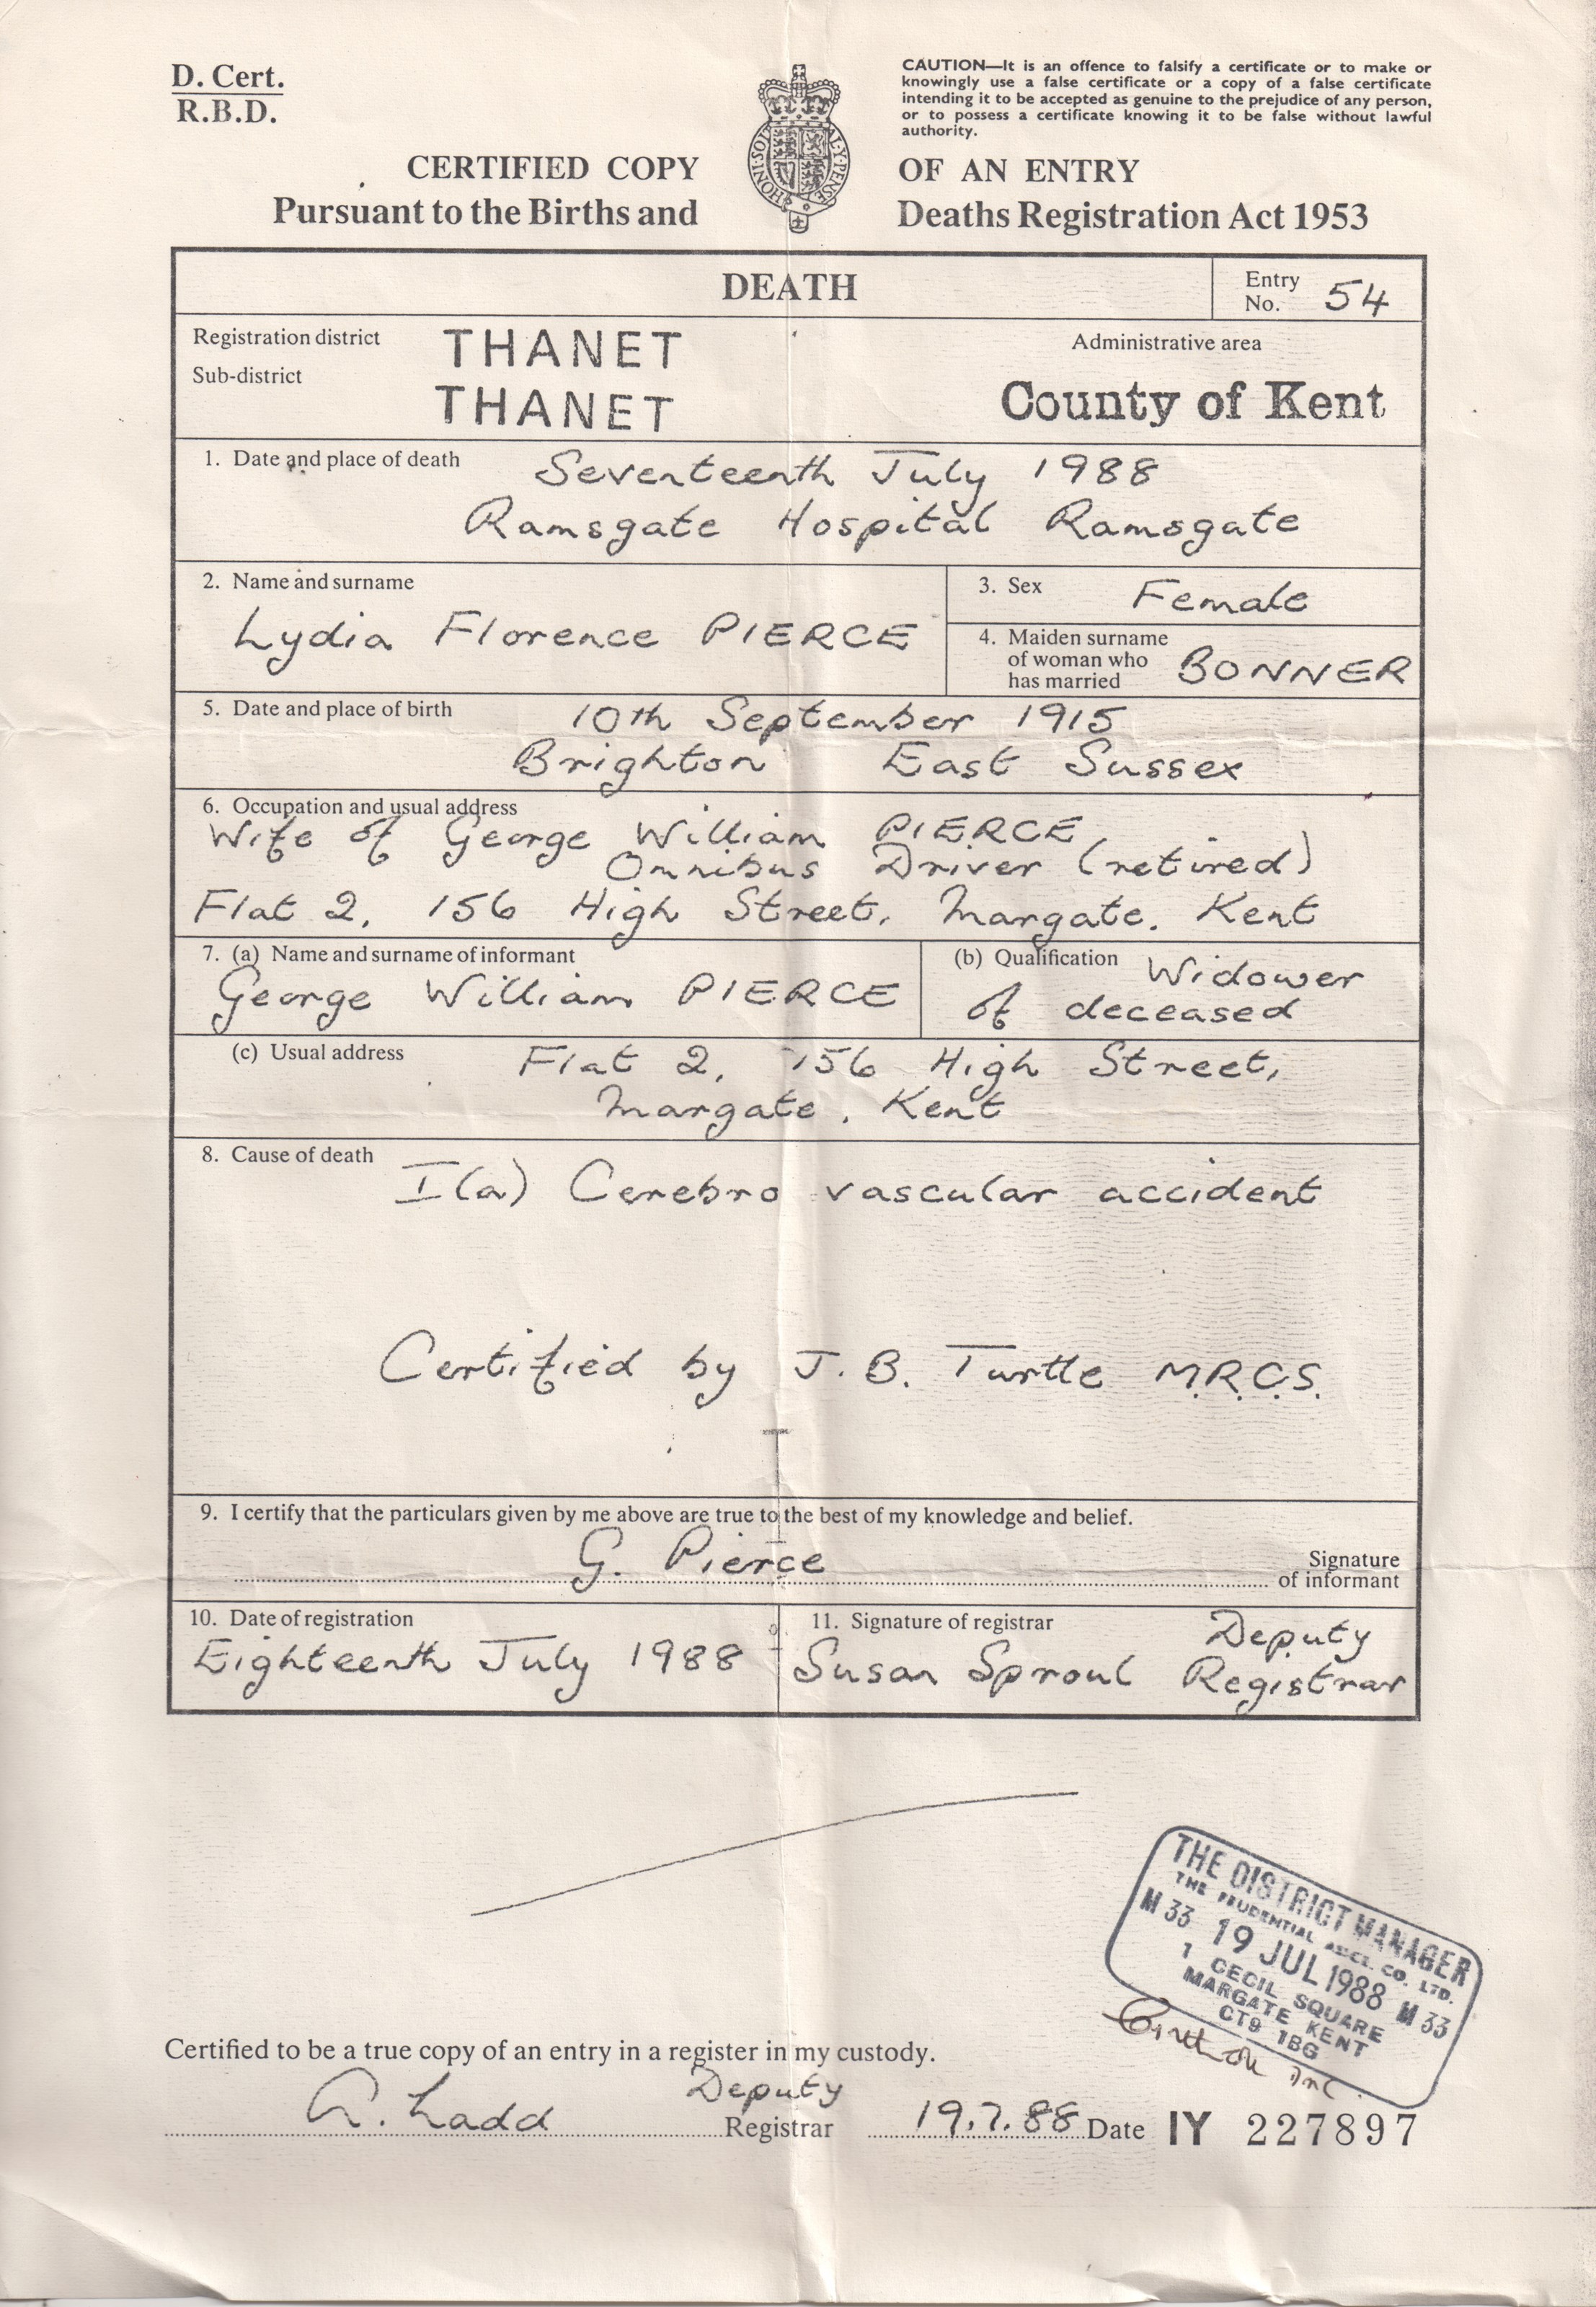 D. Cert.
R.B.D.
CAUTION—It is an offence to falsify a certificate or to make or
knowingly use a false certificate or a copy of a false certificate
intending it to be accepted as genuine to the prejudice of any person,
or to possess a certificate knowing it to be false without lawful
authority.
CERTIFIED COPY OF AN ENTRY
Pursuant to the Births and Deaths Registration Act 1953
HONI·SOIT
Y·PENSE
DEATH
Entry
No. 54
Registration district THANET
Administrative area
Sub-district THANET
County of Kent
1. Date and place of death Seventeenth July 1988
Ramsgate Hospital Ramsgate
2. Name and surname
Lydia Florence PIERCE
3. Sex Female
4. Maiden surname
of woman who
has married BONNER
5. Date and place of birth 10th September 1915
Brighton East Sussex
6. Occupation and usual address
Wife of George William PIERCE
Omnibus Driver (retired)
Flat 2, 156 High Street, Margate. Kent
7. (a) Name and surname of informant
George William PIERCE
(b) Qualification Widower
of deceased
(c) Usual address Flat 2, 156 High Street,
Margate. Kent
8. Cause of death
I(a) Cerebro vascular accident
Certified by J. B. Turtle M.R.C.S.
9. I certify that the particulars given by me above are true to the best of my knowledge and belief.
G. Pierce
Signature
of informant
10. Date of registration
Eighteenth July 1988
11. Signature of registrar
Susan Sproul Deputy
Registrar
THE DISTRICT MANAGER
THE PRUDENTIAL ASSCE. CO. LTD.
M 33 19 JUL 1988 M 33
1 CECIL SQUARE
MARGATE KENT
CT9 1BG
Certified to be a true copy of an entry in a register in my custody.
A. Ladd Deputy
Registrar 19.7.88 Date IY 227897